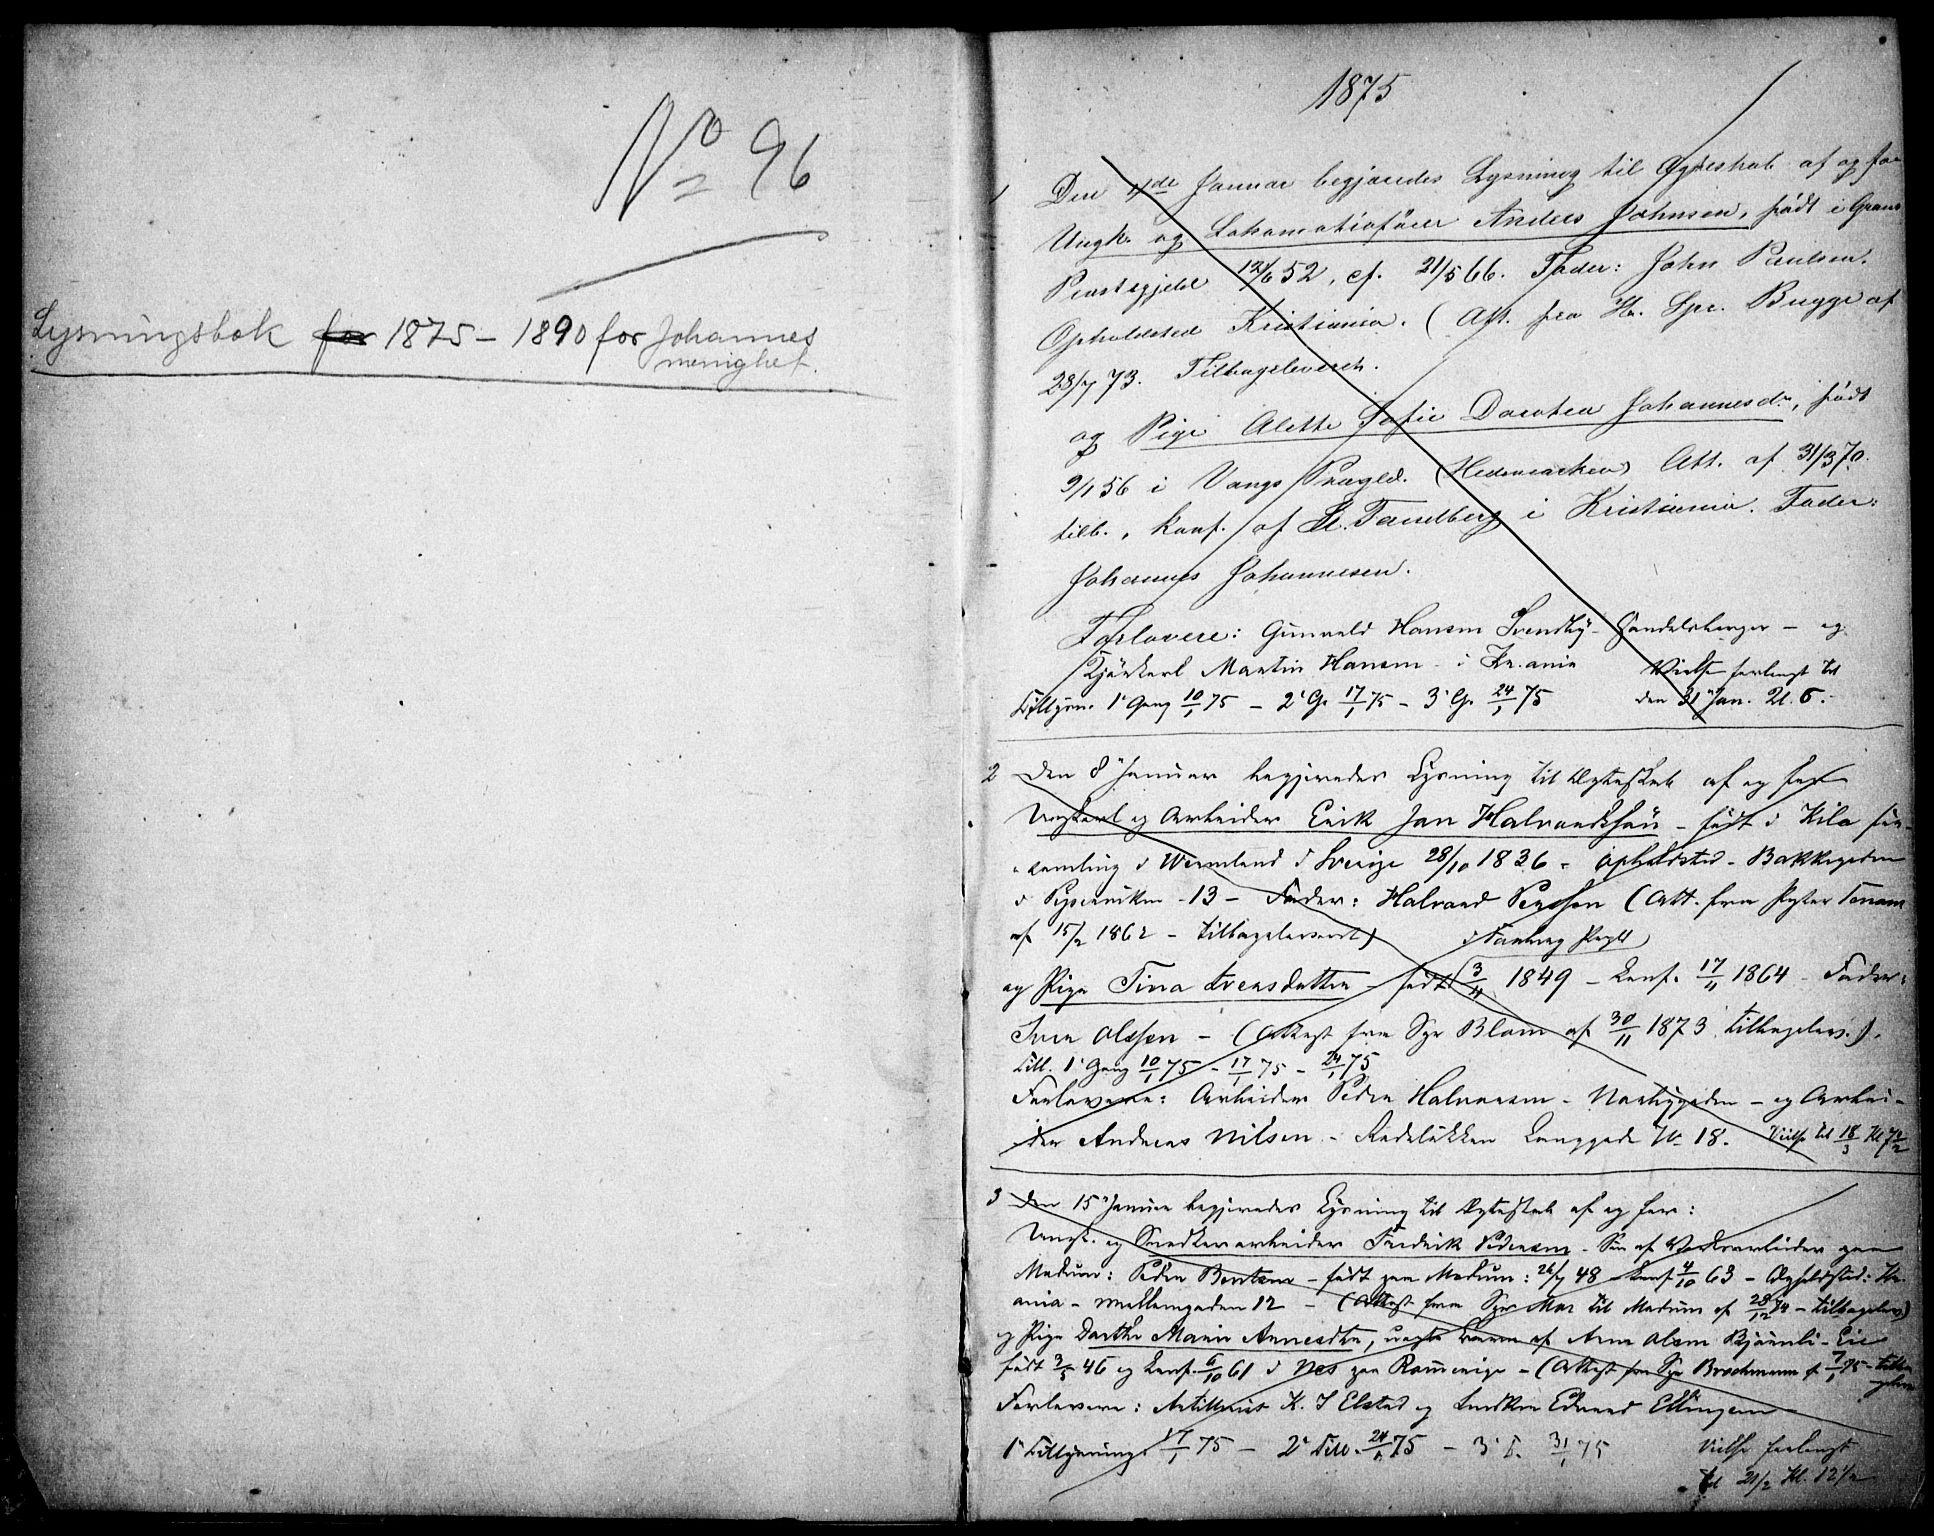 No 96
Lysningsbok for 1875 – 1890 for Johannes
menighet.
1875
1 Den 4de Januar begjæredes Lysning til Ægteskab af og for
Ungk. og Lokomotivfører Anders Johnsen, født i Grans
Præstegjeld 12/6 52, cf. 21/5 66. Fader: John Paulsen.
Opholdsted Kristiania. (Att. fra Hr. Spr. Bugge af
28/7 73. Tilbageleveret.
og Pige Alette Sofie Dorothea Johannesd., født
9/1 56 i Vangs Prægld. (Hedemarken) Att. af 31/3 70.
tilb., konf. af Tandberg i Kristiania. Fader:
Johannes Johannesen.
Forlovere: Gunvald Hansen Svendby – Handelsborger – og
Martin Hansen – i Kr.ania Vielse forlangt til
Tillysn. 1' Gang 10/1 75 – 2' G. 17/1 75 – 3' G. 24/1 75 den 31 Jan. Kl. 6.
2 Den 8' Januar begjæredes Lysning til Ægteskab af og for
Ungkarl og Arbeider Erik Jan Halvordsson – født i Kila
samling i Wermland i Sverige 28/10 1836 – Opholdsted – Bakkegaden
i Pipervigen – 13 – Fader: Halvord Persson (Att. fra
af 15/2 1862 – tilbageleveret)
og Pige Tina Iversdatter – født 3/11 1849 – konf. 17/11 1864 – Fader:
Iver Olsen – (Attest fra Spr Blom af 30/11 1873 tilbagelev.).
Till. 1' Gang 10/1 75 – 17/1 75 – 24/1 75
Forlovere: Arbeider Peder Halvorsen – – og Arbei-
der Andreas Nilsen – Rodeløkken Langgade No 18. Vielse til 18/3 Kl 7 1/2
3 Den 15' Januar begjæredes Lysning til Ægteskab af og for:
Ungk. og Snedkerarbeider Fredrik Pedersen – Søn af Verksarbeider paa
Modum: Peder Bentsen – født paa Modum: 26/7 48 konf 4/10 63 – Opholdsted: Kr.
ania – Mellemgaden 12 – (Attest fra Spr til Modum af 28/12 74 – tilbagelev)
og Pige Dorthe Marie Arnesdtr, uægte Barn af Arne Olsen
født 3/5 46 og konf. 6/10 61 i Nes paa Romerige – (Attest fra Spr Brochmann af 7/1 75 –
Forlovere: K. J Elstad og Snedker Edvard Ellingsen
1' Tillysning: 17/1 75 – 2' Till. 24/1 75 – 3' T. 31/1 75 Vielse forlangt
til 21/2 Kl. 12 1/2